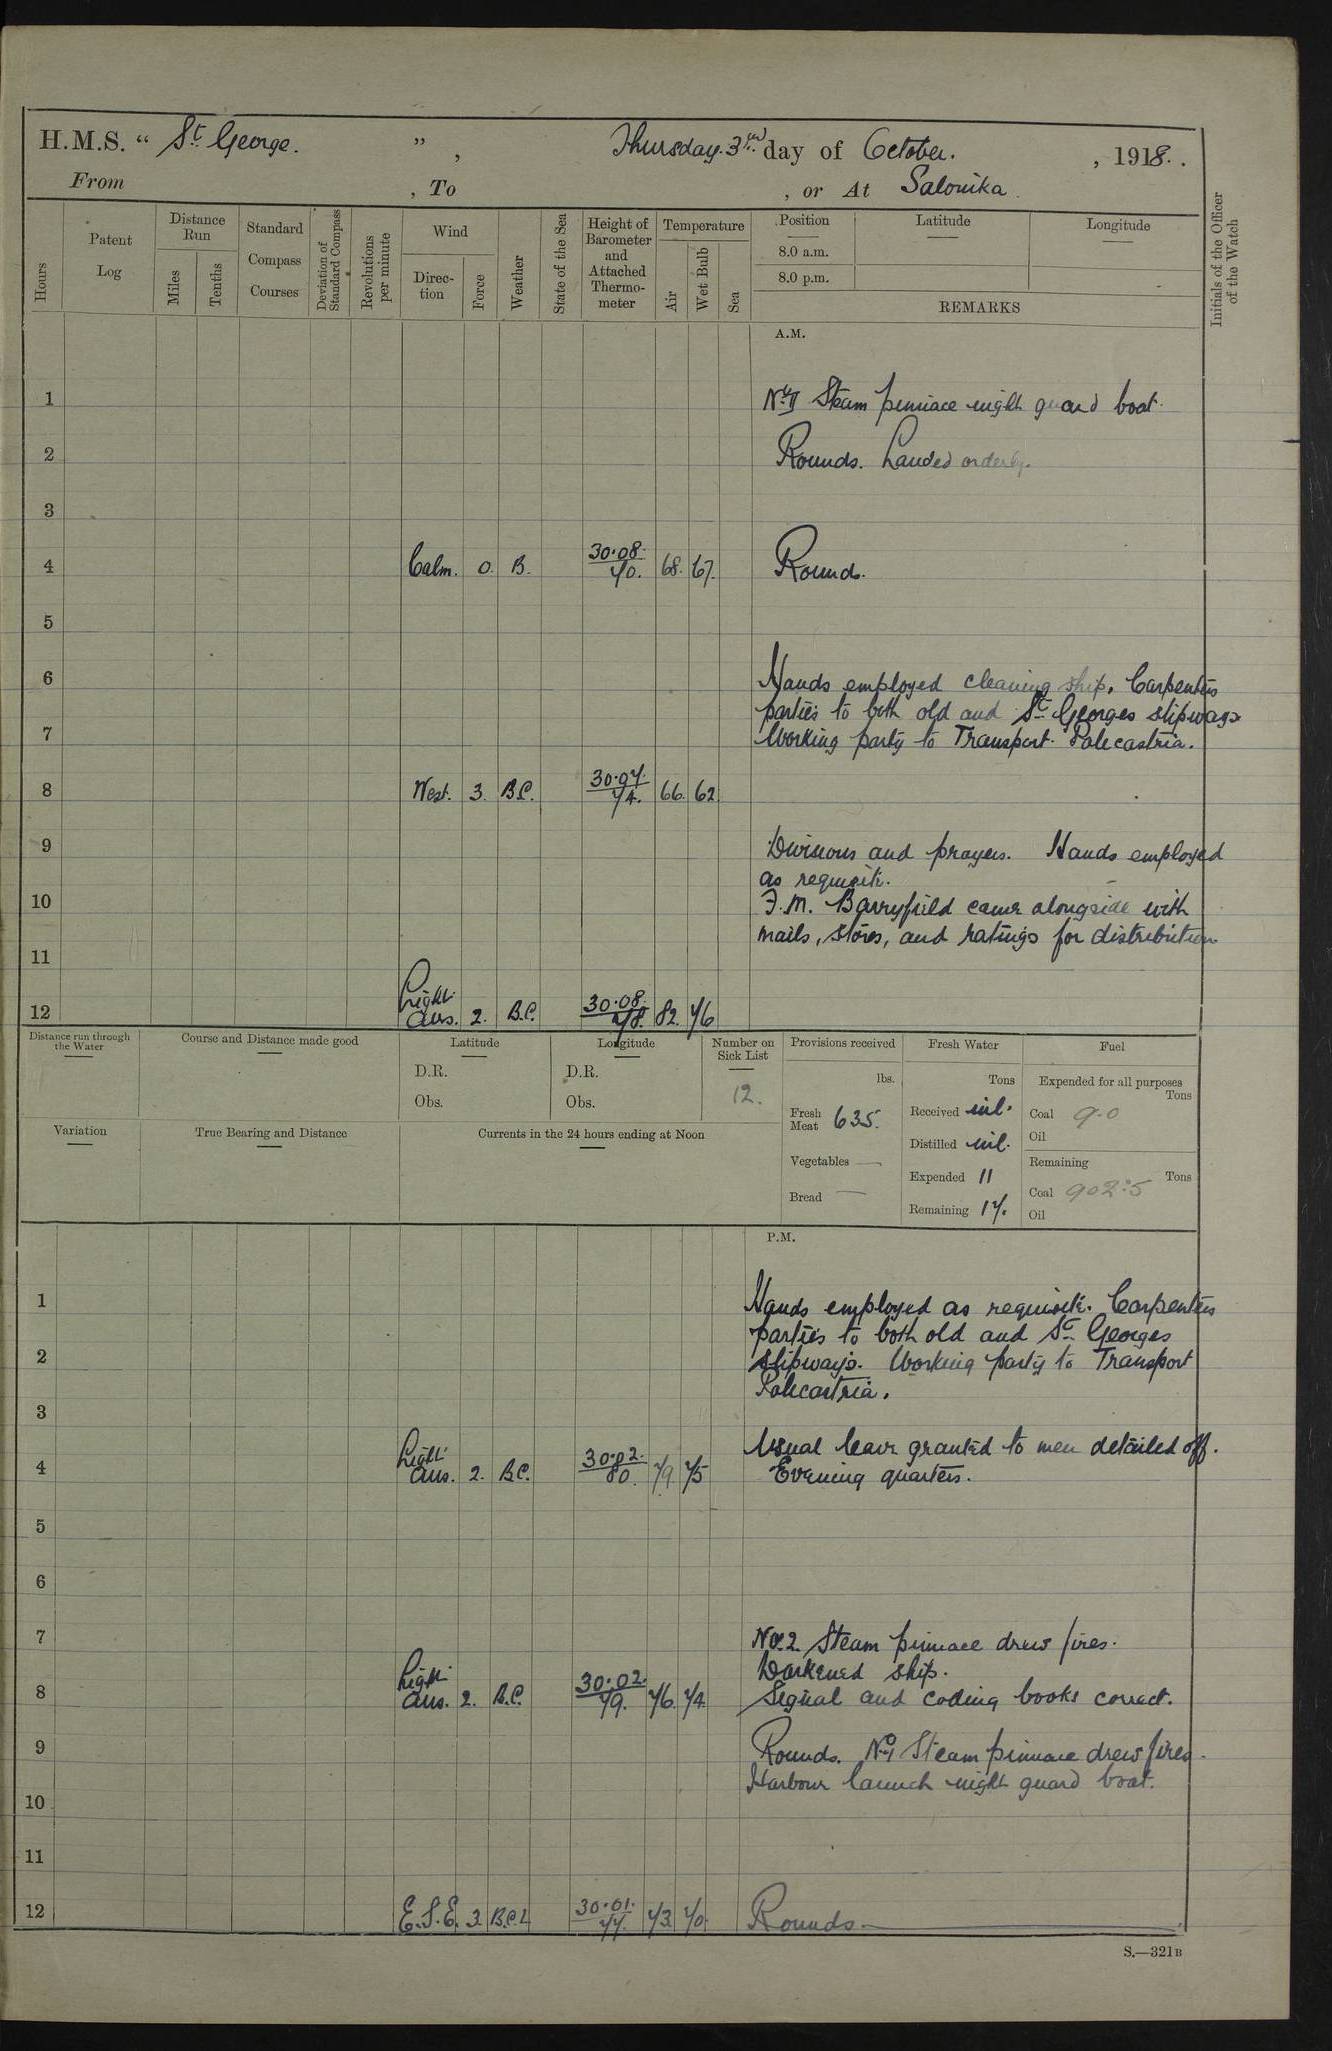 H.M.S. “ St. George. ” , Thursday. 3rd day of October. , 1918. .
From , To , or At Salonika.
Hours
Patent Log
Distance Run
Miles
Tenths
Standard Compass Courses
Deviation of Standard Compass
Revolutions per minute
Wind
Direction
Force
Weather
State of the Sea
Height of Barometer and Attached Thermometer
Temperature
Air
Wet Bulb
Sea
Position
8.0 a.m.
8.0 p.m.
Latitude
Longitude
REMARKS
Initials of the Officer of the Watch
A.M.
1 Steam pinnace night guard boat.
2 Rounds. Landed orderly.
3
4 Calm. 0. B. 30.08. 70. 68. 67. Rounds.
5
6 Hands employed cleaning ship. Carpenters
parties to both old and St. Georges slipways
7 Working party to Transport. Palecastria.
8 West. 3. B.C. 30.07. 74. 66. 62.
9 Divisions and prayers. Hands employed
as requisite.
10 F.M. Barryfield came alongside with
mails, stores, and ratings for distribution
11
12 Light airs. 2. B.C. 30.08. 78. 82. 76
Distance run through the Water
Course and Distance made good
Latitude
D.R.
Obs.
Longitude
D.R.
Obs.
Number on Sick List
12.
Provisions received
lbs.
Fresh Meat 635.
Vegetables —
Bread —
Fresh Water
Tons
Received nil.
Distilled nil.
Expended 11
Remaining 17.
Fuel
Expended for all purposes
Tons
Coal 9.0
Oil
Remaining
Tons
Coal 902.5
Oil
Variation
True Bearing and Distance
Currents in the 24 hours ending at Noon
P.M.
1 Hands employed as requisite. Carpenters
parties to both old and St. Georges
2 slipways. Working party to Transport
Palecastria.
3
Usual leave granted to men detailed off.
4 Light airs. 2. B.C. 30.02. 80. 79. 75 Evening quarters.
5
6
7 No. 2. Steam pinnace drew fires.
Darkened ship.
8 Light airs. 2. B.C. 30.02. 79. 76. 74. Signal and coding books correct.
9 Rounds. No 1 Steam pinnace drew fires.
Harbour launch night guard boat.
10
11
12 E.S.E. 3. B.C.L 30.01. 77. 73. 70. Rounds.
S.—321B